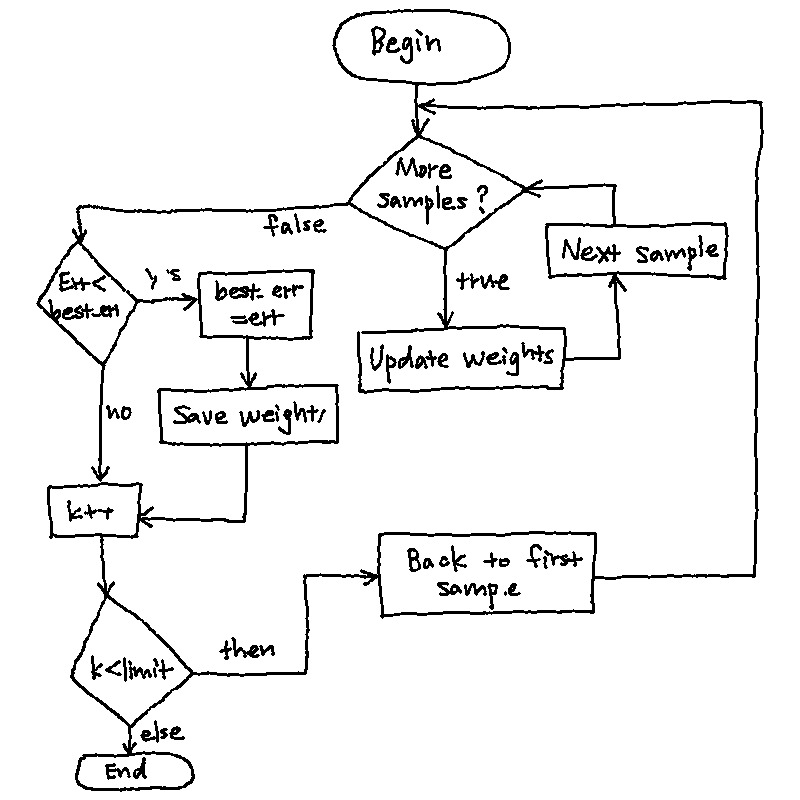 Begin
More
samples?
false
true
Next sample
Update weights
Err<
best_err
best_err
=err
no
Save weights
k++
Back to first
sample
k<limit
then
else
End